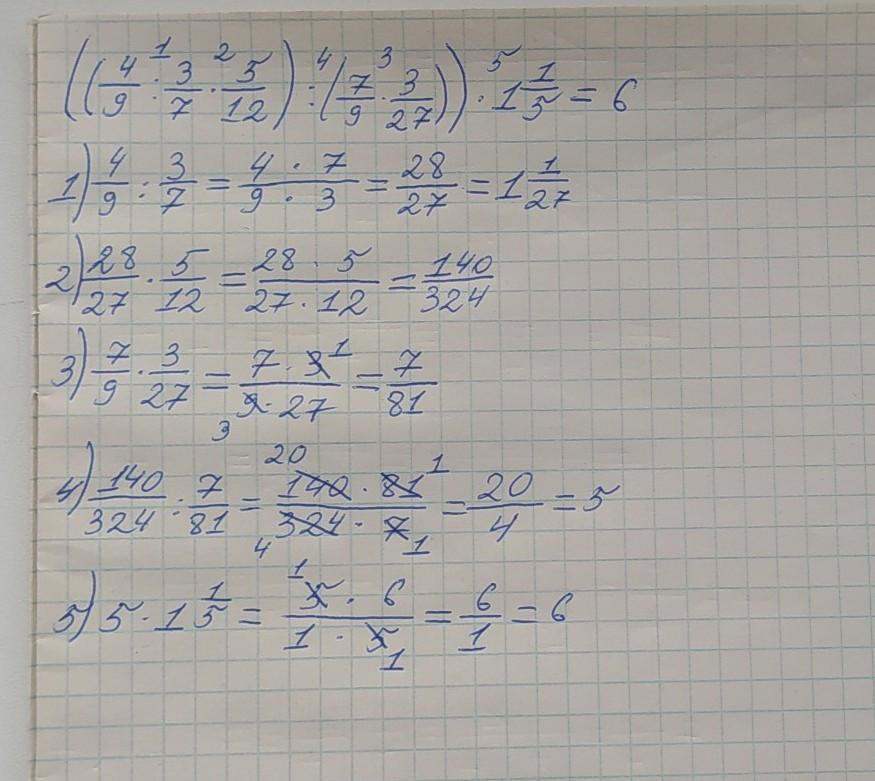 ((4/9 : 3/7 · 5/12) : (7/9 · 3/27)) · 1 1/5 = 6
1) 4/9 : 3/7 = 4 · 7/9 · 3 = 28/27 = 1 1/27
2) 28/27 · 5/12 = 28 · 5/27 · 12 = 140/324
3) 7/9 · 3/27 = 7 · 3/9 · 27 = 7/81
4) 140/324 : 7/81 = 140 · 81/324 · 7 = 20/4 = 5
5) 5 · 1 1/5 = 5 · 6/1 · 5 = 6/1 = 6